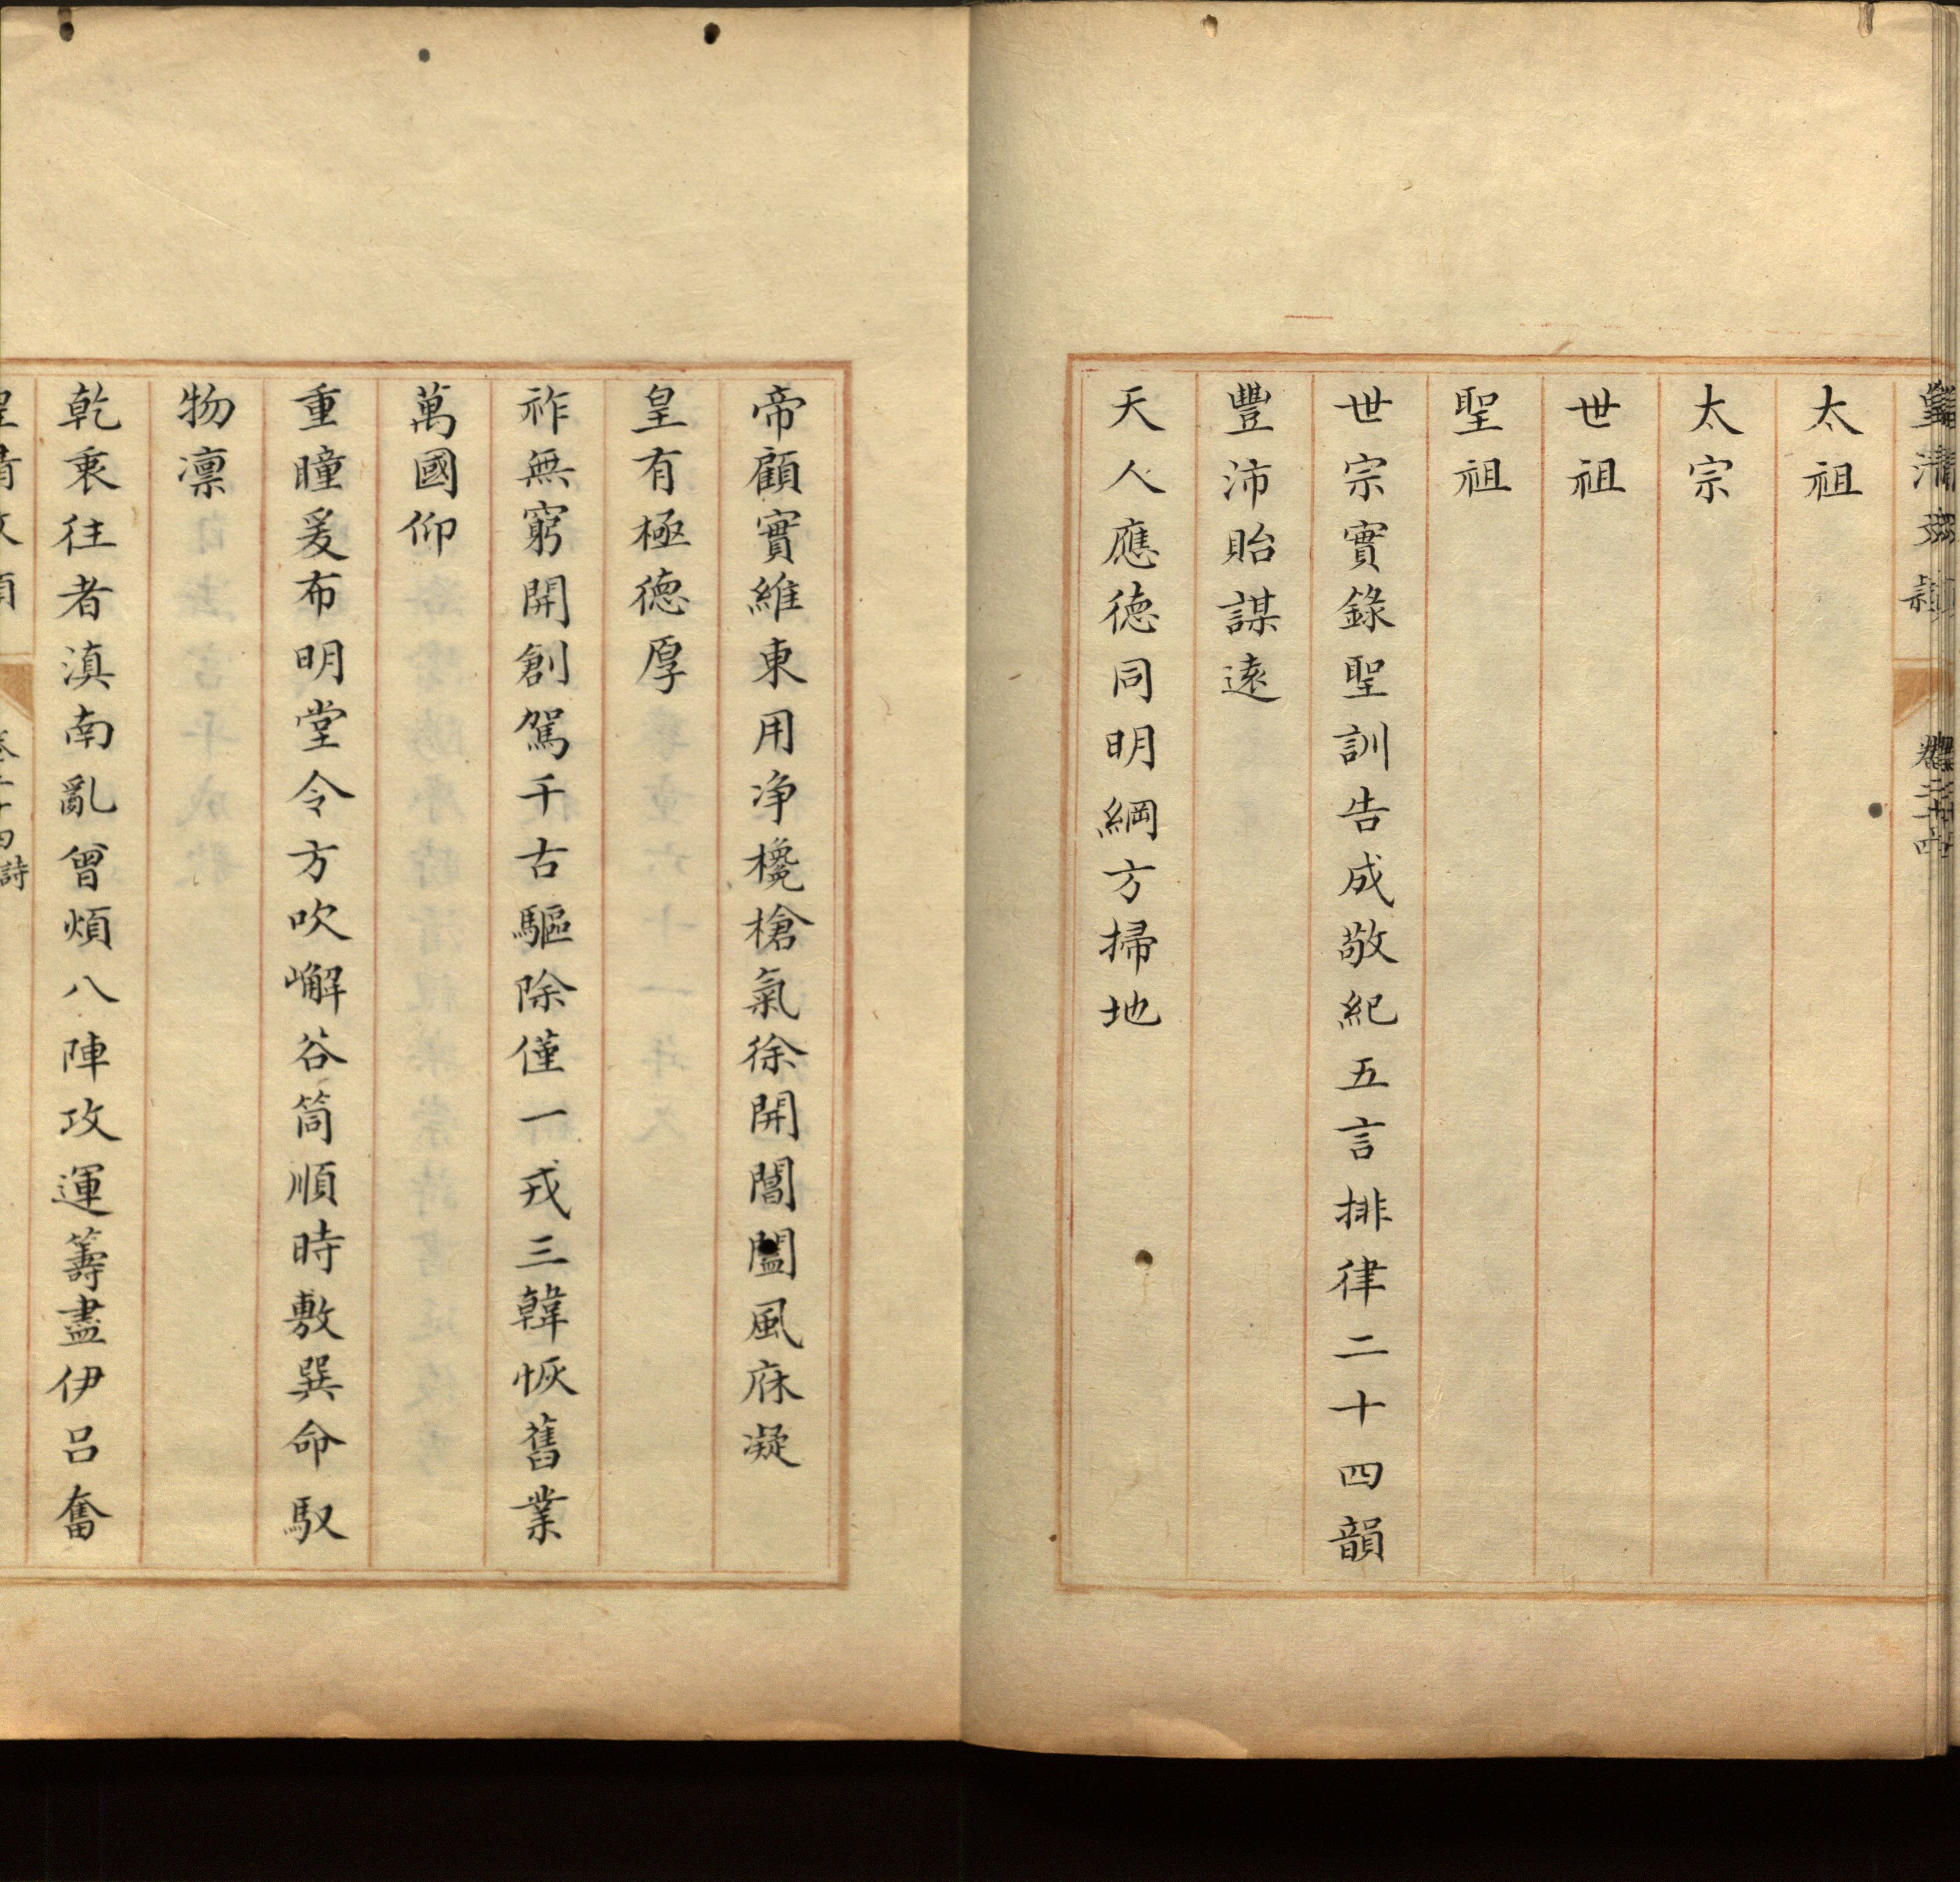 皇清文頴 卷二十四
太祖
太宗
世祖
聖祖
世宗實錄聖訓告成敬紀五言排律二十四韻
豐沛貽謀遠
天人應德同明綱方掃地
帝顧實維東用净欃槍氣徐開閶闔風庥凝
皇有極德厚
祚無窮開創駕千古驅除僅一戎三韓恢舊業
萬國仰
重瞳爰布明堂令方吹嶰谷筒順時敷巽命馭
物凛
乾衷往者滇南亂曾煩八陣攻運籌盡伊呂奮